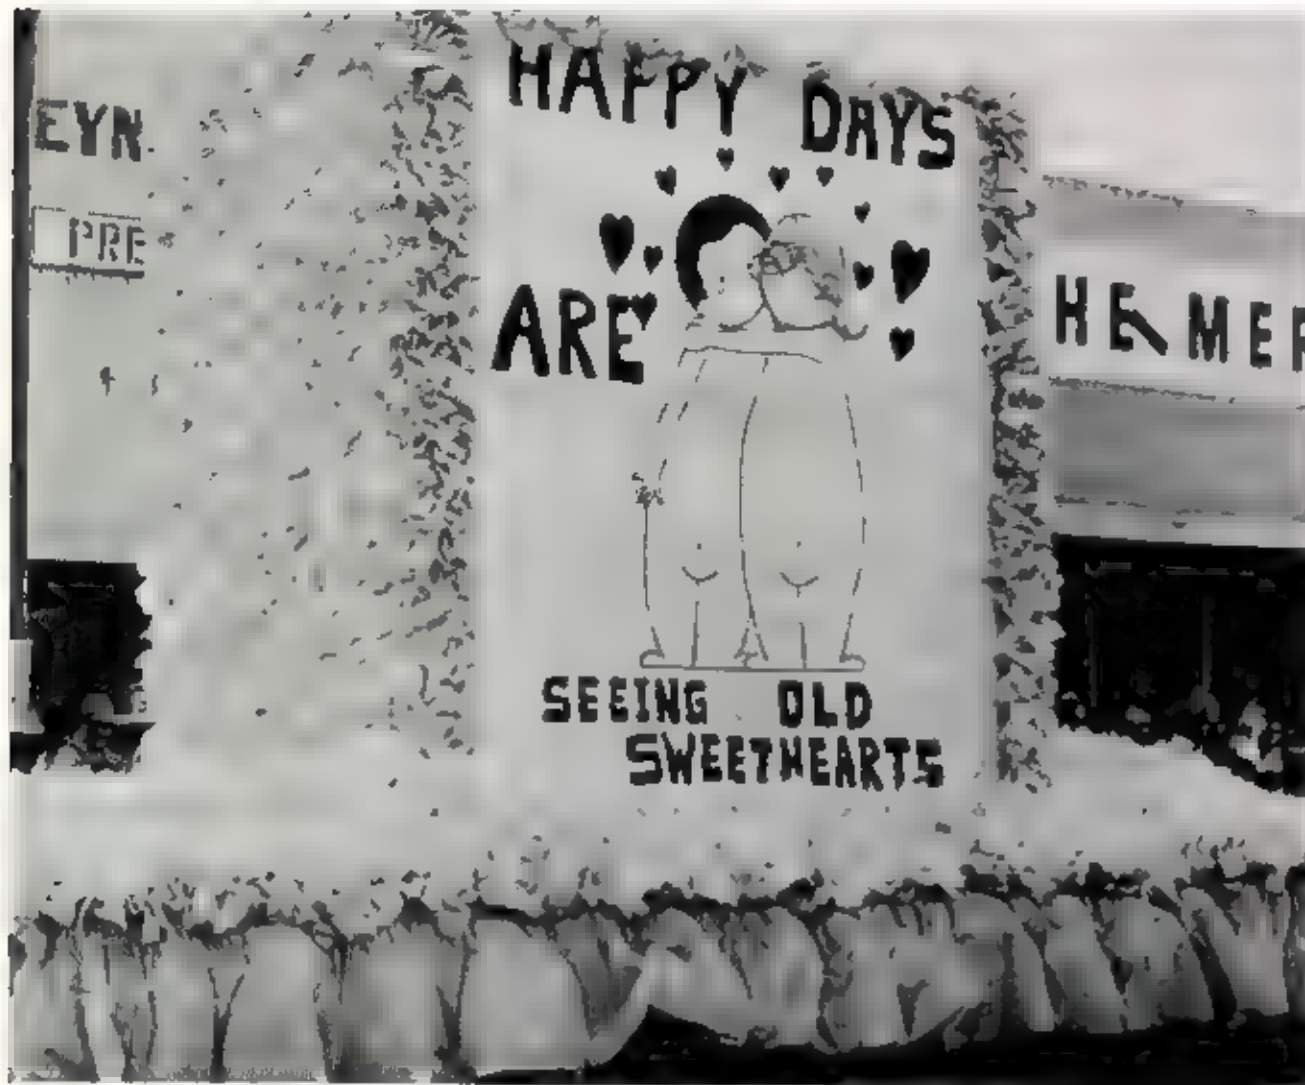 EYN
PRE
HAPPY DAYS
ARE
SEEING OLD
SWEETHEARTS
HE MER